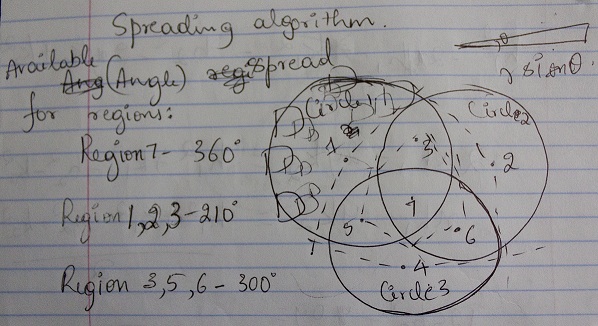 Spreading algorithm.
Available (Angle) spread
for regions:
Region 7 - 360°
Region 1,2,3 - 210°
Region 3,5,6 - 300°
θ
r sinθ
Circle 1
Circle 2
1
3
2
7
5
6
4
Circle 3